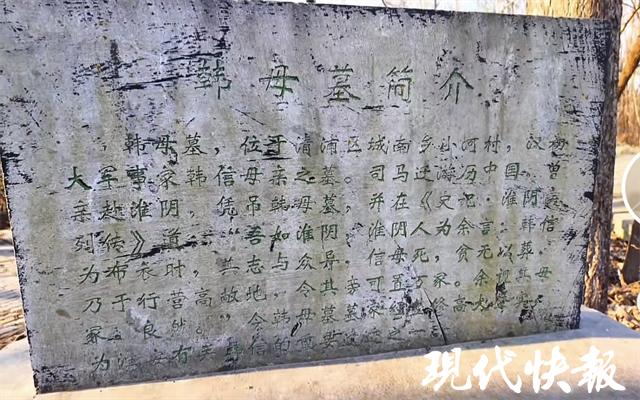 韩母墓简介
韩母墓，位于清浦区城南乡小河村，汉初
大军事家韩信母亲之墓。司马迁游历中国，曾
亲赴淮阴，凭吊韩母墓，并在《史记·淮阴侯
列传》道："吾如淮阴，淮阴人为余言，韩信
为布衣时，其志与众异。其母死，贫无以葬，
乃于行营高敞地，令其旁可置万家。余视其母
冢，良然。"今韩母墓高大
为淮安有关韩信的之一
现代快報